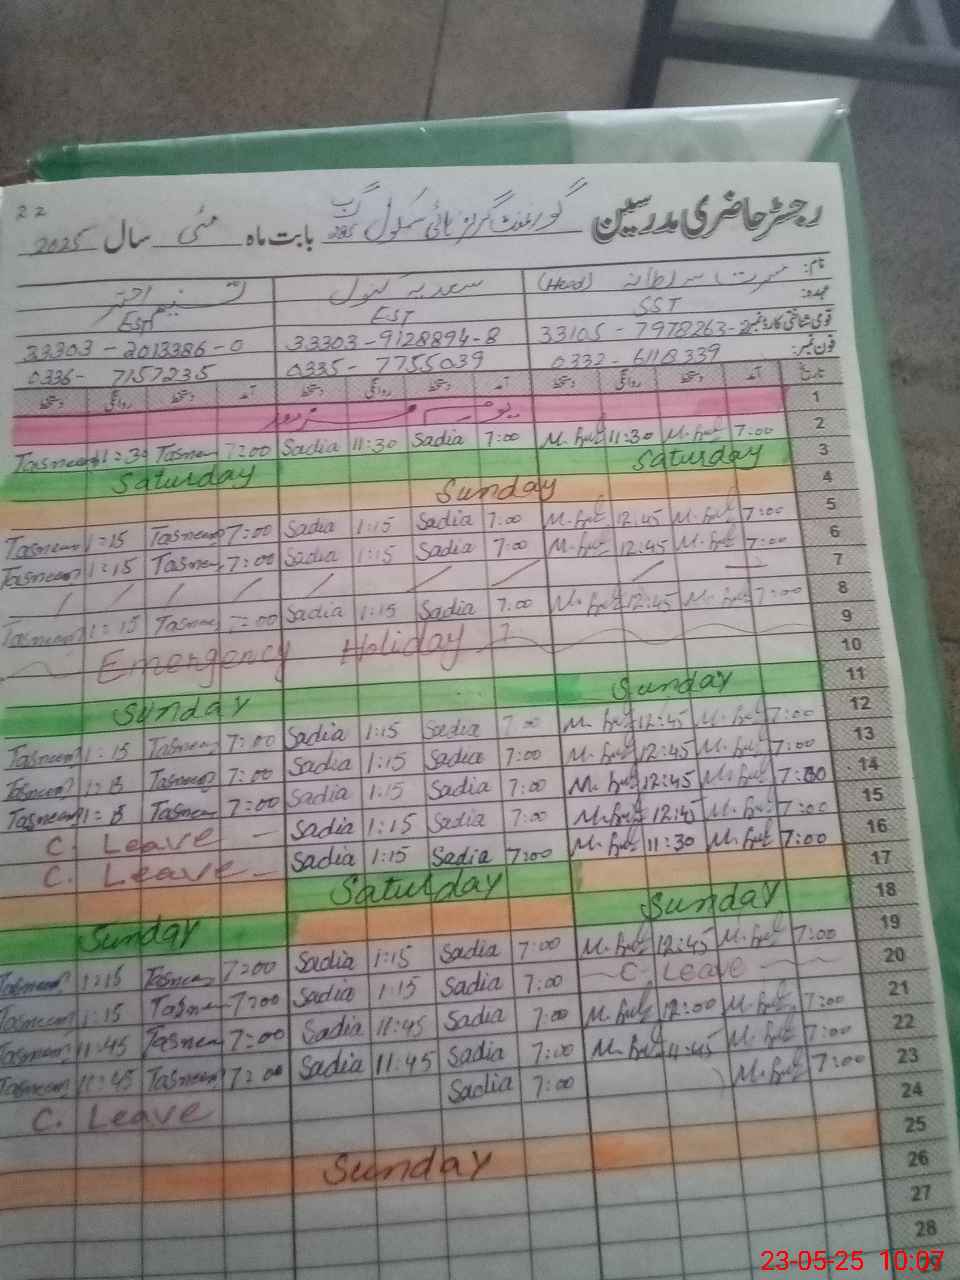 22
رجسٹر حاضری مدرسین گورنمنٹ گرلز ہائی سکول بابت ماہ مئی سال 2025
نام: مسرت سلطانہ (Head) سعدیہ کنول تسنیم اختر
عہدہ: SST EST EST
قومی شناختی کارڈ نمبر: 33105-7978263-2 33303-9128894-8 33303-2013386-0
فون نمبر: 0332-6118339 0335-7755039 0336-7157235
تاریخ آمد دستخط روانگی دستخط آمد دستخط روانگی دستخط آمد دستخط روانگی دستخط
1
Tasneem 11:30 Tasneem 7:00 Sadia 11:30 Sadia 7:00 11:30 7:00 2
Saturday Saturday 3
Sunday 4
Tasneem 1:15 Tasneem 7:00 Sadia 1:15 Sadia 7:00 12:45 7:00 5
Tasneem 1:15 Tasneem 7:00 Sadia 1:15 Sadia 7:00 12:45 7:00 6
7
Tasneem 1:15 Tasneem 7:00 Sadia 1:15 Sadia 7:00 12:45 7:00 8
Emergency Holiday 9
10
Sunday Sunday 11
Tasneem 1:15 Tasneem 7:00 Sadia 1:15 Sadia 7:00 12:45 7:00 12
Tasneem 1:15 Tasneem 7:00 Sadia 1:15 Sadia 7:00 12:45 7:00 13
Tasneem 1:15 Tasneem 7:00 Sadia 1:15 Sadia 7:00 12:45 7:00 14
C. Leave Sadia 1:15 Sadia 7:00 12:45 7:00 15
C. Leave Sadia 1:15 Sadia 7:00 11:30 7:00 16
Saturday 17
Sunday Sunday 18
Tasneem 1:15 Tasneem 7:00 Sadia 1:15 Sadia 7:00 12:45 7:00 19
Tasneem 1:15 Tasneem 7:00 Sadia 1:15 Sadia 7:00 C. Leave 20
Tasneem 11:45 Tasneem 7:00 Sadia 11:45 Sadia 7:00 12:00 7:00 21
Tasneem 11:45 Tasneem 7:00 Sadia 11:45 Sadia 7:00 11:45 7:00 22
C. Leave Sadia 7:00 7:00 23
24
Sunday 25
26
27
28
29
23-05-25 10:07